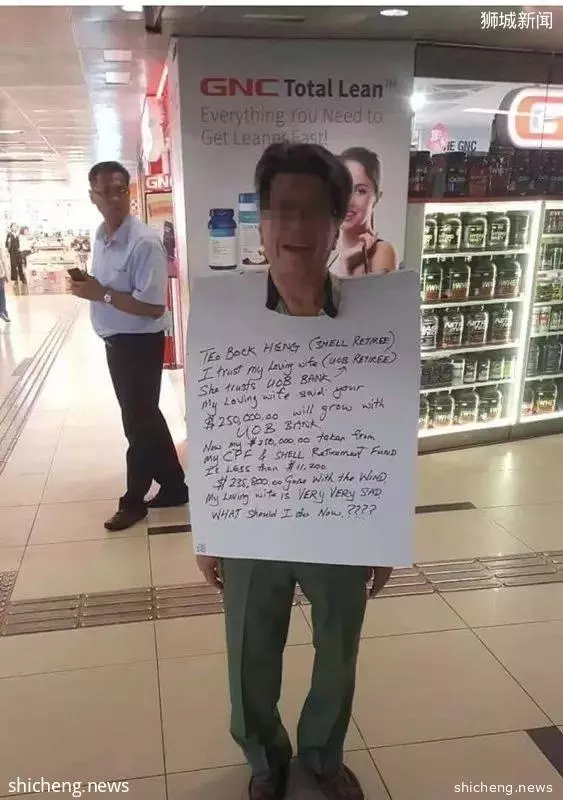 狮城新闻
GNC Total Lean™
Everything You Need to
Get Leaner Fast!
THE GNC
GNC
TEO BOCK HENG (SHELL RETIREE)
I trust my Loving wife (UOB RETIREE)
She trusts UOB BANK
My Loving wife said your
$250,000.00 will grow with
UOB BANK
Now my $250,000.00 taken from
my CPF & SHELL Retirement FUND
Is Less than $11,200
$238,800.00 Gone With the WIND.
My Loving wife is VERY VERY SAD
WHAT Should I do Now.????
shicheng.news
shicheng.news